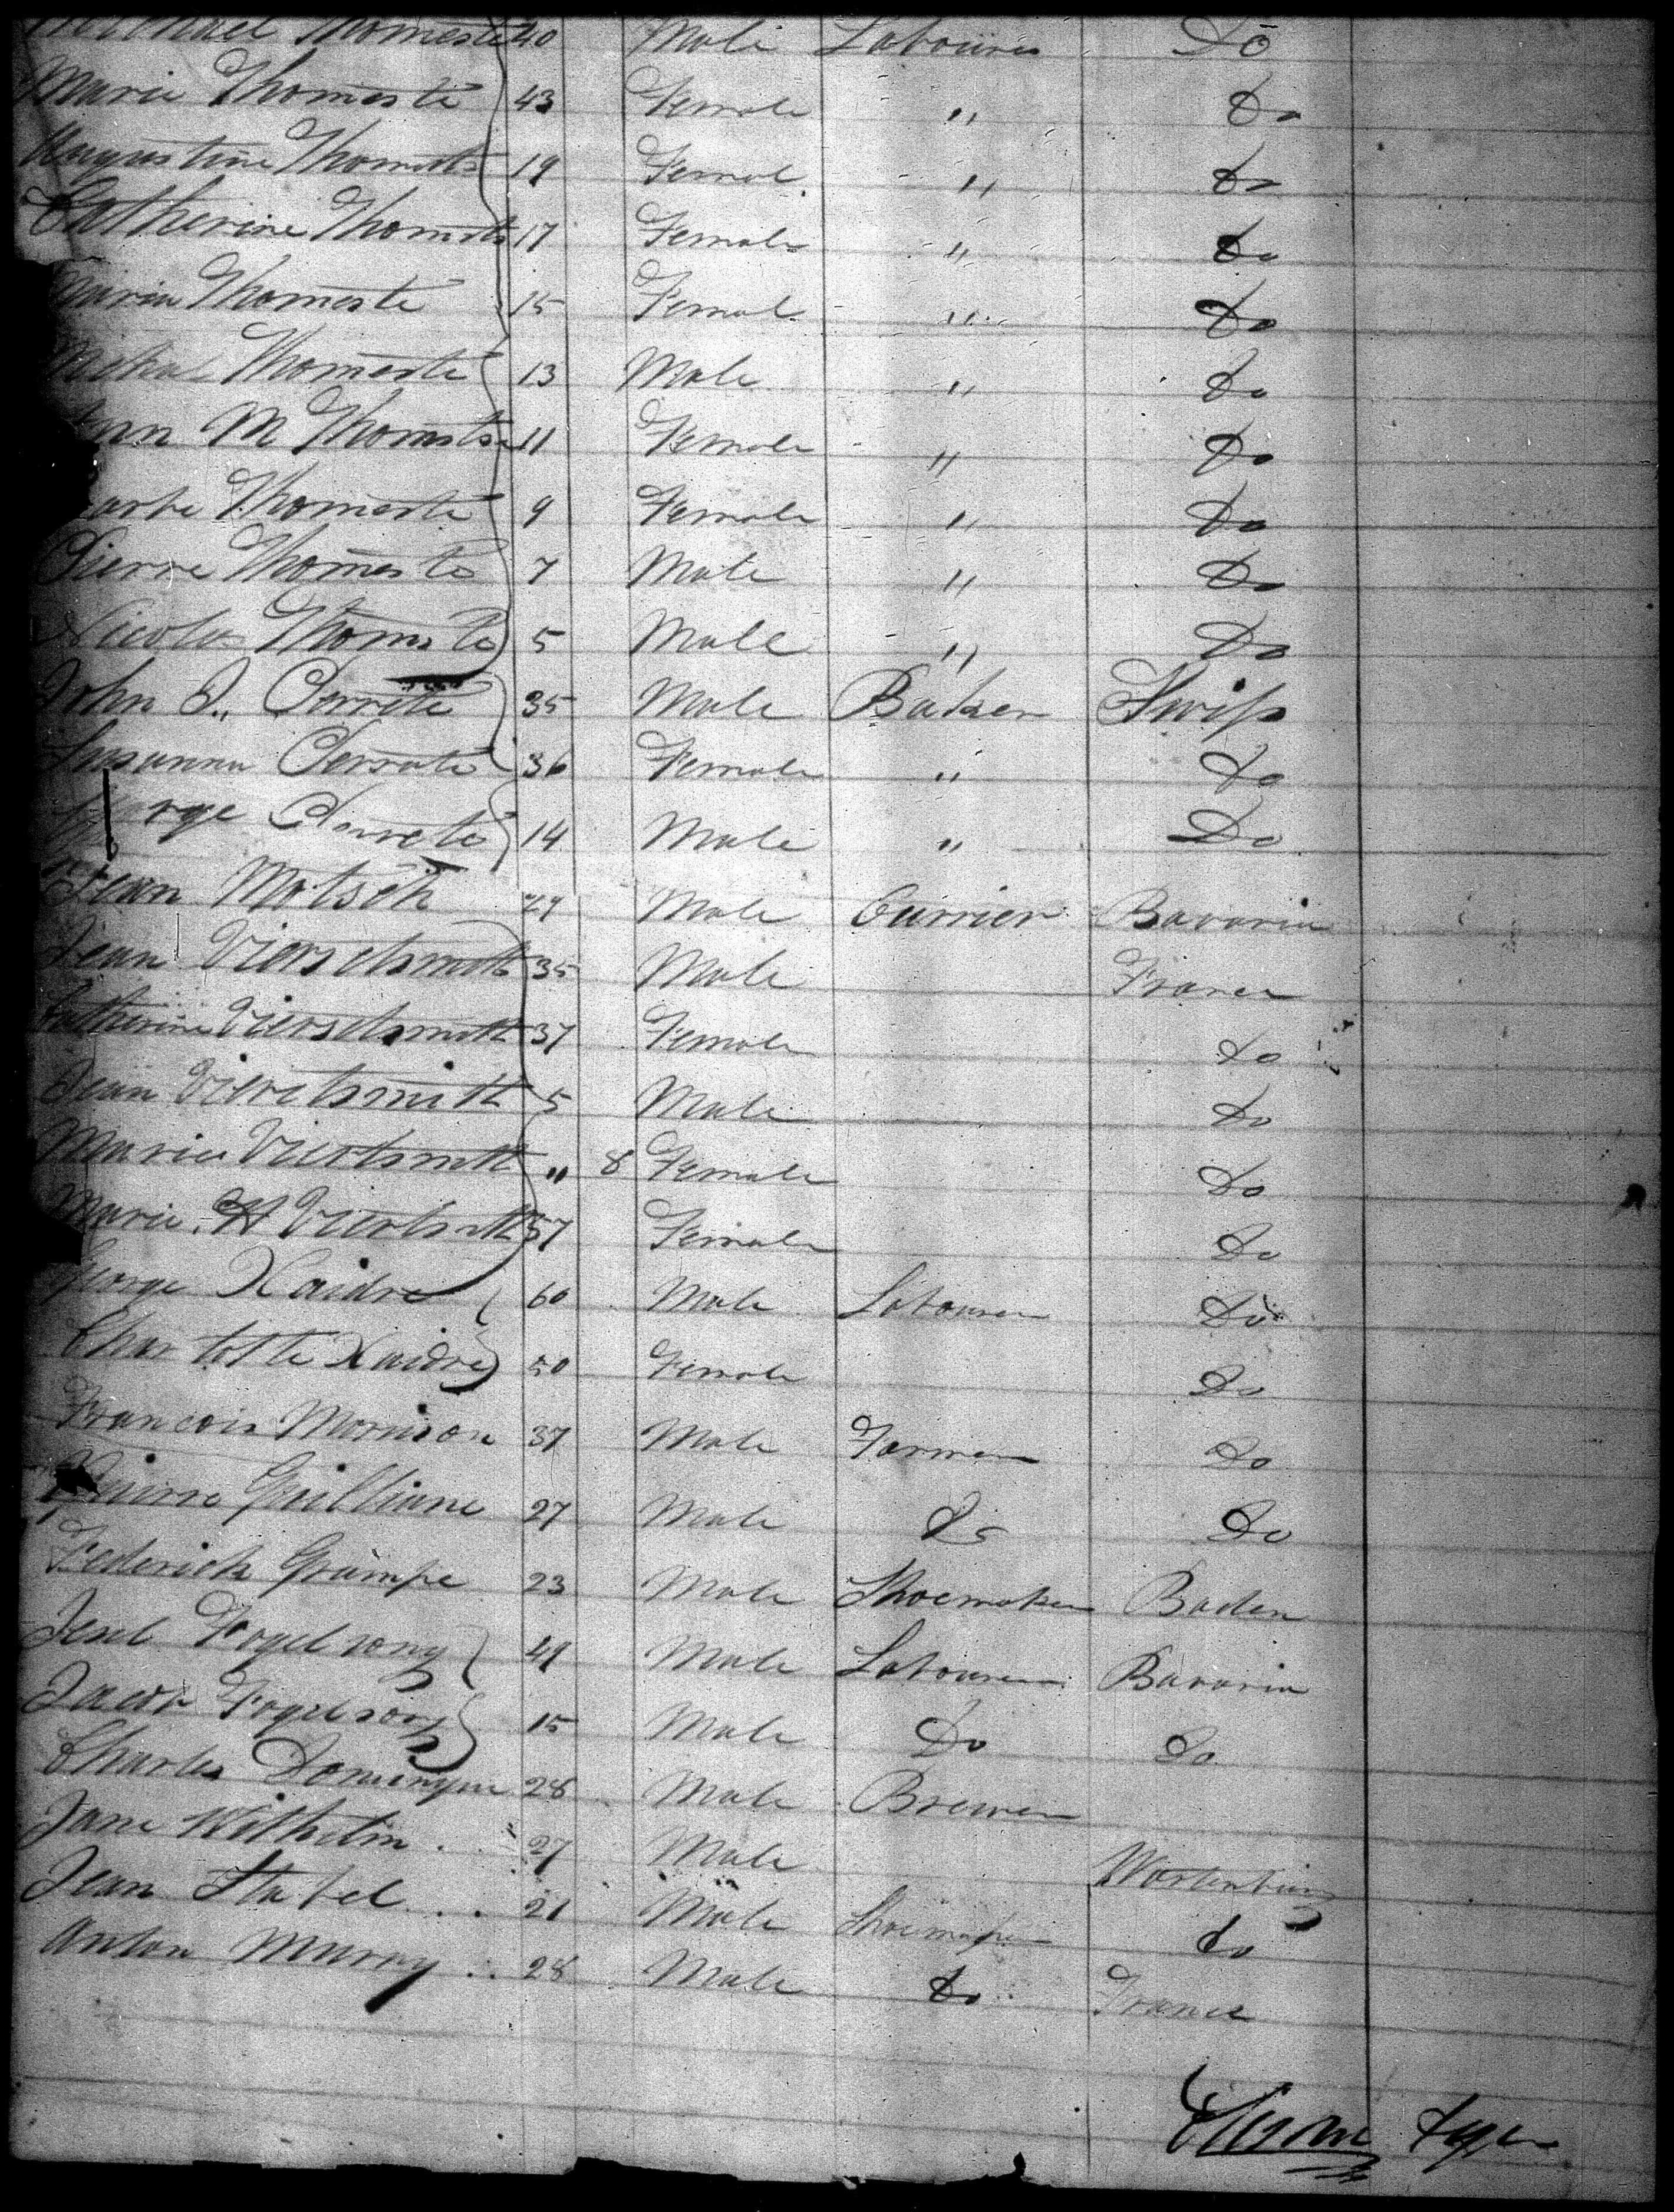 Michael Thomeste 40 Male Labourer Do
Marie Thomeste 43 Female " Do
Augustine Thomeste 19 Femal " Do
Catherine Thomeste 17 Female " Do
Maria Thomeste 15 Femal " Do
Thomeste 13 Male " Do
Ann M Thomeste 11 Female " Do
Thomeste 9 Female " Do
Pierre Thomeste 7 Male " Do
Nicolas Thomste 5 Male " Do
John J. Perrete 35 Male Baker Swiss
Susanna Perrete 36 Female " Do
George Perrete 14 Male " Do
Jean Motsch 29 Male Currier Bavaria
Jean Vierschmitt 35 Male France
Catherine Vierschmitt 37 Female Do
Jean Viertsmitt 5 Male Do
Maria Viertsmitt " 8 Female Do
Marie Viertsmitt 57 Female Do
George Xaidre 60 Male Labourer Do
Charlotte Xaidre 50 Female Do
Francois Morrison 37 Male Farmer Do
Pierre Guilliane 27 Male Do Do
Federick Grumpe 23 Male Shoemaker Baden
Fogelsong 49 Male Labourer Bavaria
Jacob Fogelsong 15 Male Do Do
Charles Dominque 28 Male Brewer
Jane Wilhelm 27 Male Wortenburg
Jean Stabel 21 Male Shoemaker do
Anton Murny 28 Male Do France